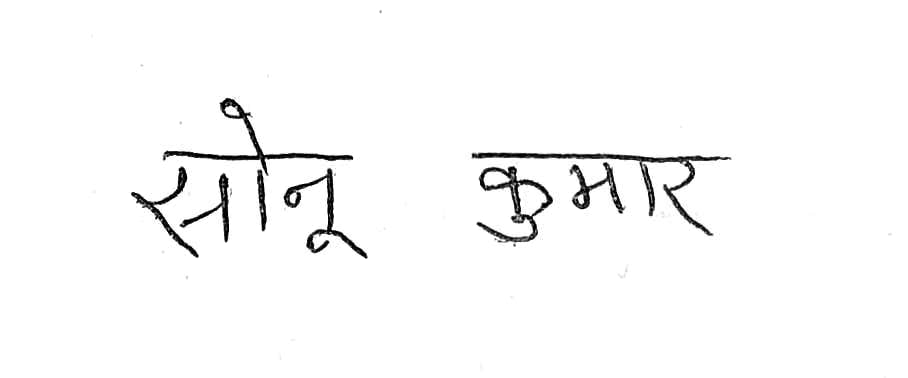 सोनू कुमार